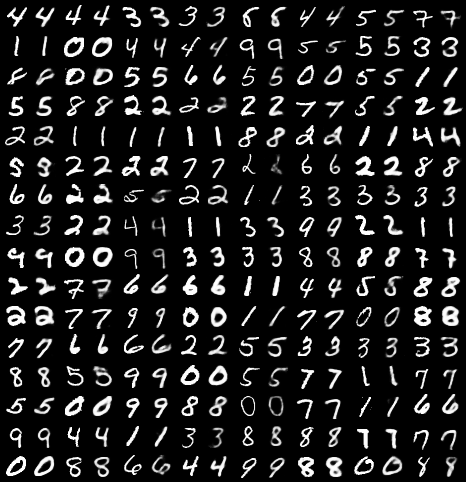 4 4 4 4 3 3 3 3 8 8 4 4 5 5 7 7
1 1 0 0 4 4 4 4 9 9 5 5 5 5 3 3
8 8 0 0 5 5 6 6 5 5 0 0 5 5 1 1
5 5 8 8 2 2 2 2 2 2 7 7 5 5 2 2
2 2 1 1 1 1 1 1 8 8 2 2 1 1 4 4
5 5 2 2 2 2 7 7 2 2 6 6 2 2 8 8
6 6 2 2 5 5 2 2 1 1 3 3 3 3 3 3
3 3 2 2 4 4 1 1 3 3 9 9 2 2 1 1
9 9 0 0 9 9 3 3 3 3 8 8 8 8 7 7
2 2 7 7 6 6 6 6 1 1 4 4 5 5 8 8
2 2 7 7 9 9 0 0 1 1 7 7 0 0 8 8
7 7 6 6 6 6 2 2 5 5 3 3 3 3 3 3
8 8 5 5 9 9 0 0 5 5 7 7 1 1 7 7
5 5 0 0 9 9 8 8 0 0 7 7 1 1 6 6
9 9 4 4 1 1 3 3 8 8 8 8 7 7 7 7
0 0 8 8 6 6 4 4 9 9 8 8 0 0 8 8